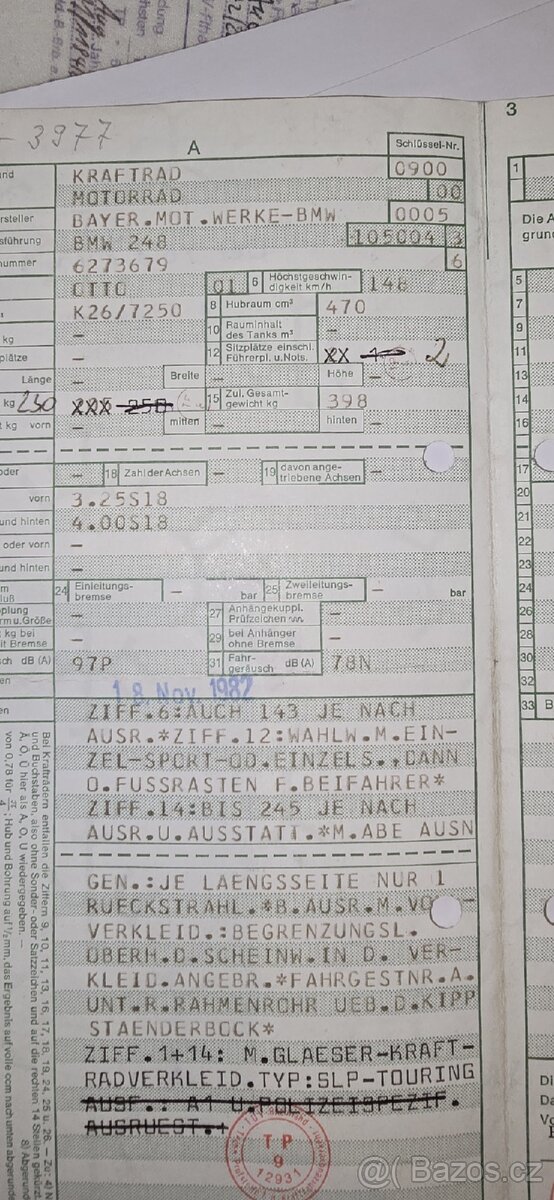 3977
A
Schlüssel-Nr.
3
KRAFTRAD 0900 1
MOTORRAD 00
BAYER.MOT.WERKE-BMW 0005
Die A
ausführung BMW 248 105004 3
6273679 6
OTTO 01 6 Höchstgeschwin-digkeit km/h 148 5
K26/7250 8 Hubraum cm³ 470 7
kg – 10 Rauminhalt des Tanks m³ – 9
12 Sitzplätze einschl. Führerpl. u. Nots. XX 1 2 11
Länge – Breite – Höhe – 13
kg 230 XXX 250 15 Zul. Gesamt-gewicht kg 398 14
kg vorn – mitten – hinten – 16
oder – 18 Zahl der Achsen – 19 davon ange-triebene Achsen – 17
vorn 3.25S18 20
und hinten 4.00S18 21
oder vorn – 22
und hinten – 23
24 Einleitungs-bremse – bar 25 Zweileitungs-bremse – bar 24
27 Anhängekuppl. Prüfzeichen – 26
kg bei
mit Bremse – 29 bei Anhänger ohne Bremse – 28
dB (A) 97P 31 Fahr-geräusch dB (A) 78N 30
32
18. Nov. 1982
33 B
ZIFF.6:AUCH 143 JE NACH
AUSR.*ZIFF.12:WAHLW.M.EIN-
ZEL-SPORT-OD.EINZELS.,DANN
O.FUSSRASTEN F.BEIFAHRER*
ZIFF.14:BIS 245 JE NACH
AUSR.U.AUSSTATT.*M.ABE AUSN
GEN.:JE LAENGSSEITE NUR 1
RUECKSTRAHL.*B.AUSR.M.VO
VERKLEID.:BEGRENZUNGSL.
OBERH.D.SCHEINW.IN D. VER-
KLEID.ANGEBR.*FAHRGESTNR.A.
UNT.R.RAHMENROHR UEB.D.KIPP
STAENDERBOCK*
ZIFF.1+14: M.GLAESER-KRAFT-
RADVERKLEID.TYP:SLP-TOURING
AUSF.: A1 U.POLIZEISPEZIF.
AUSRUEST.+
Bei Krafträdern entfallen die Ziffern 9, 10, 11, 13, 16, 17, 18, 19, 24, 25 u. 26. – Zu: 4)
und Buchstaben, also ohne Sonder- oder Satzzeichen und auf die rechten 14 Stellen gekürzt.
Ä, Ö, Ü hier als A, O, U wiedergegeben. –
Hub und Bohrung auf ½ mm, das Ergebnis auf volle ccm nach unten abgerund
TP
9
12931
Bazos.cz